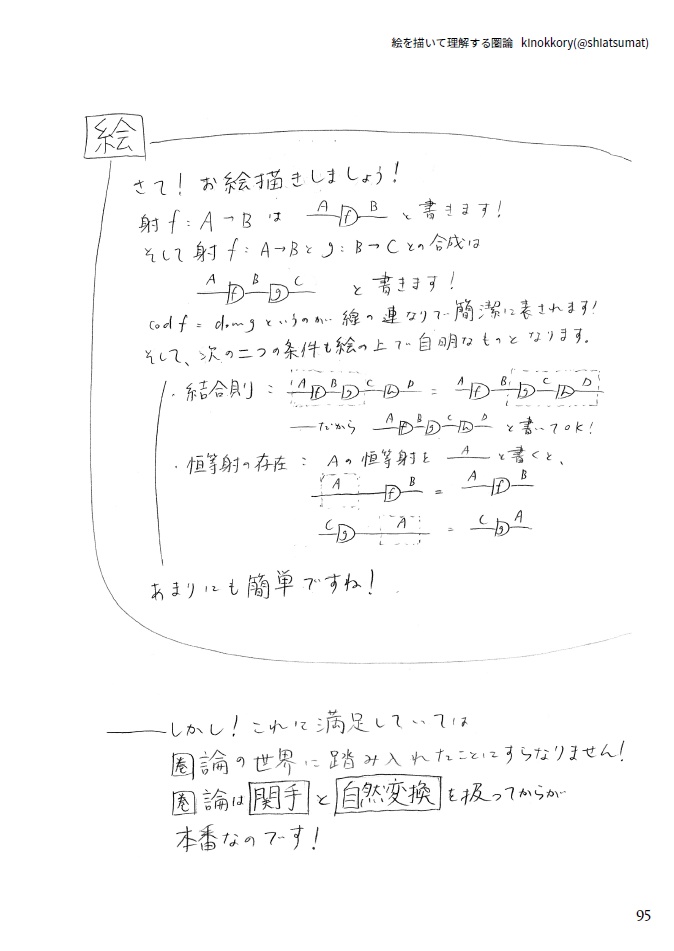 絵を描いて理解する圏論 kinokkory(@shiatsumat)
絵
さて！お絵描きしましょう！
射 f : A→B は A f B と書きます！
そして射 f : A→B と g : B→C との合成は
A f B g C と書きます！
cod f = dom g というのが線の連なりで簡潔に表されます！
そして、次の二つの条件も絵の上で自明なものとなります。
・結合則： A f B g C h D = A f B g C h D
だから A f B g C h D と書いてOK！
・恒等射の存在： Aの恒等射を A と書くと、
A f B = A f B
C g A = C g A
あまりにも簡単ですね！
しかし！これに満足していては
圏論の世界に踏み入れたことにすらなりません！
圏論は関手と自然変換を扱ってからが
本番なのです！
95